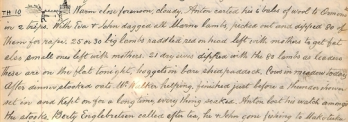 TH 10 Warm close forenoon, cloudy. Anton carted his 6 bales of wool to Ormond
in 2 trips. With Tom & John dagged all Marne lambs, picked out and dipped 60 of
them for rape. 25 or 30 big lambs raddled red on head left with mothers to get fat
also small ones left with mothers. 21 dry ewes dipped with the 60 lambs as leaders
these are on the flat tonight, hoggets in bore shed paddock. Cows in
After dinner stooked oats. helping, finished just before a thunderstorm
set in and kept on for a long time, every thing soaked. Anton lost his watch amongst
the stooks. Berty Englebretsen called after tea, he & John gone fishing to